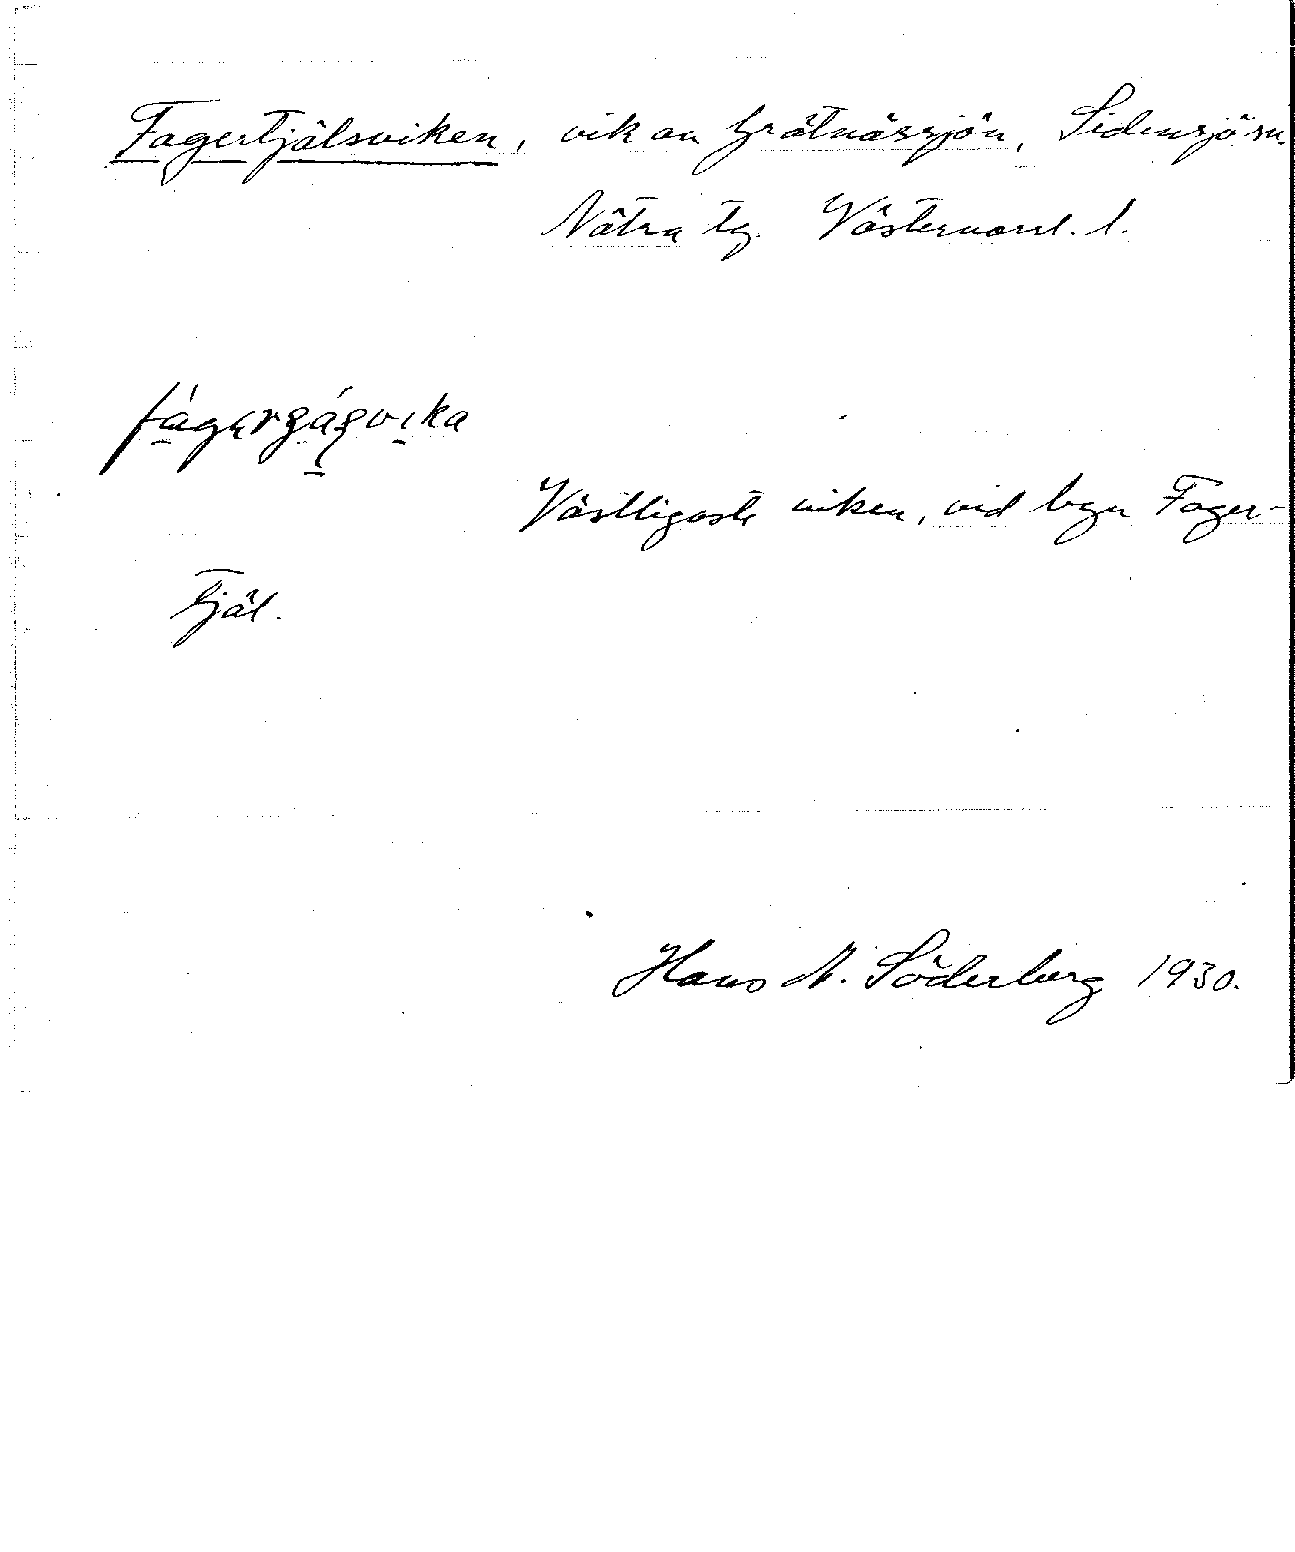 Fagertjälsviken, vik av Grätnässjön, Sidensjö sn.
Nätra tg. Västernorrl. l.
Västligaste viken, vid byn Fager-
tjäl.
Hans N. Söderberg 1930.